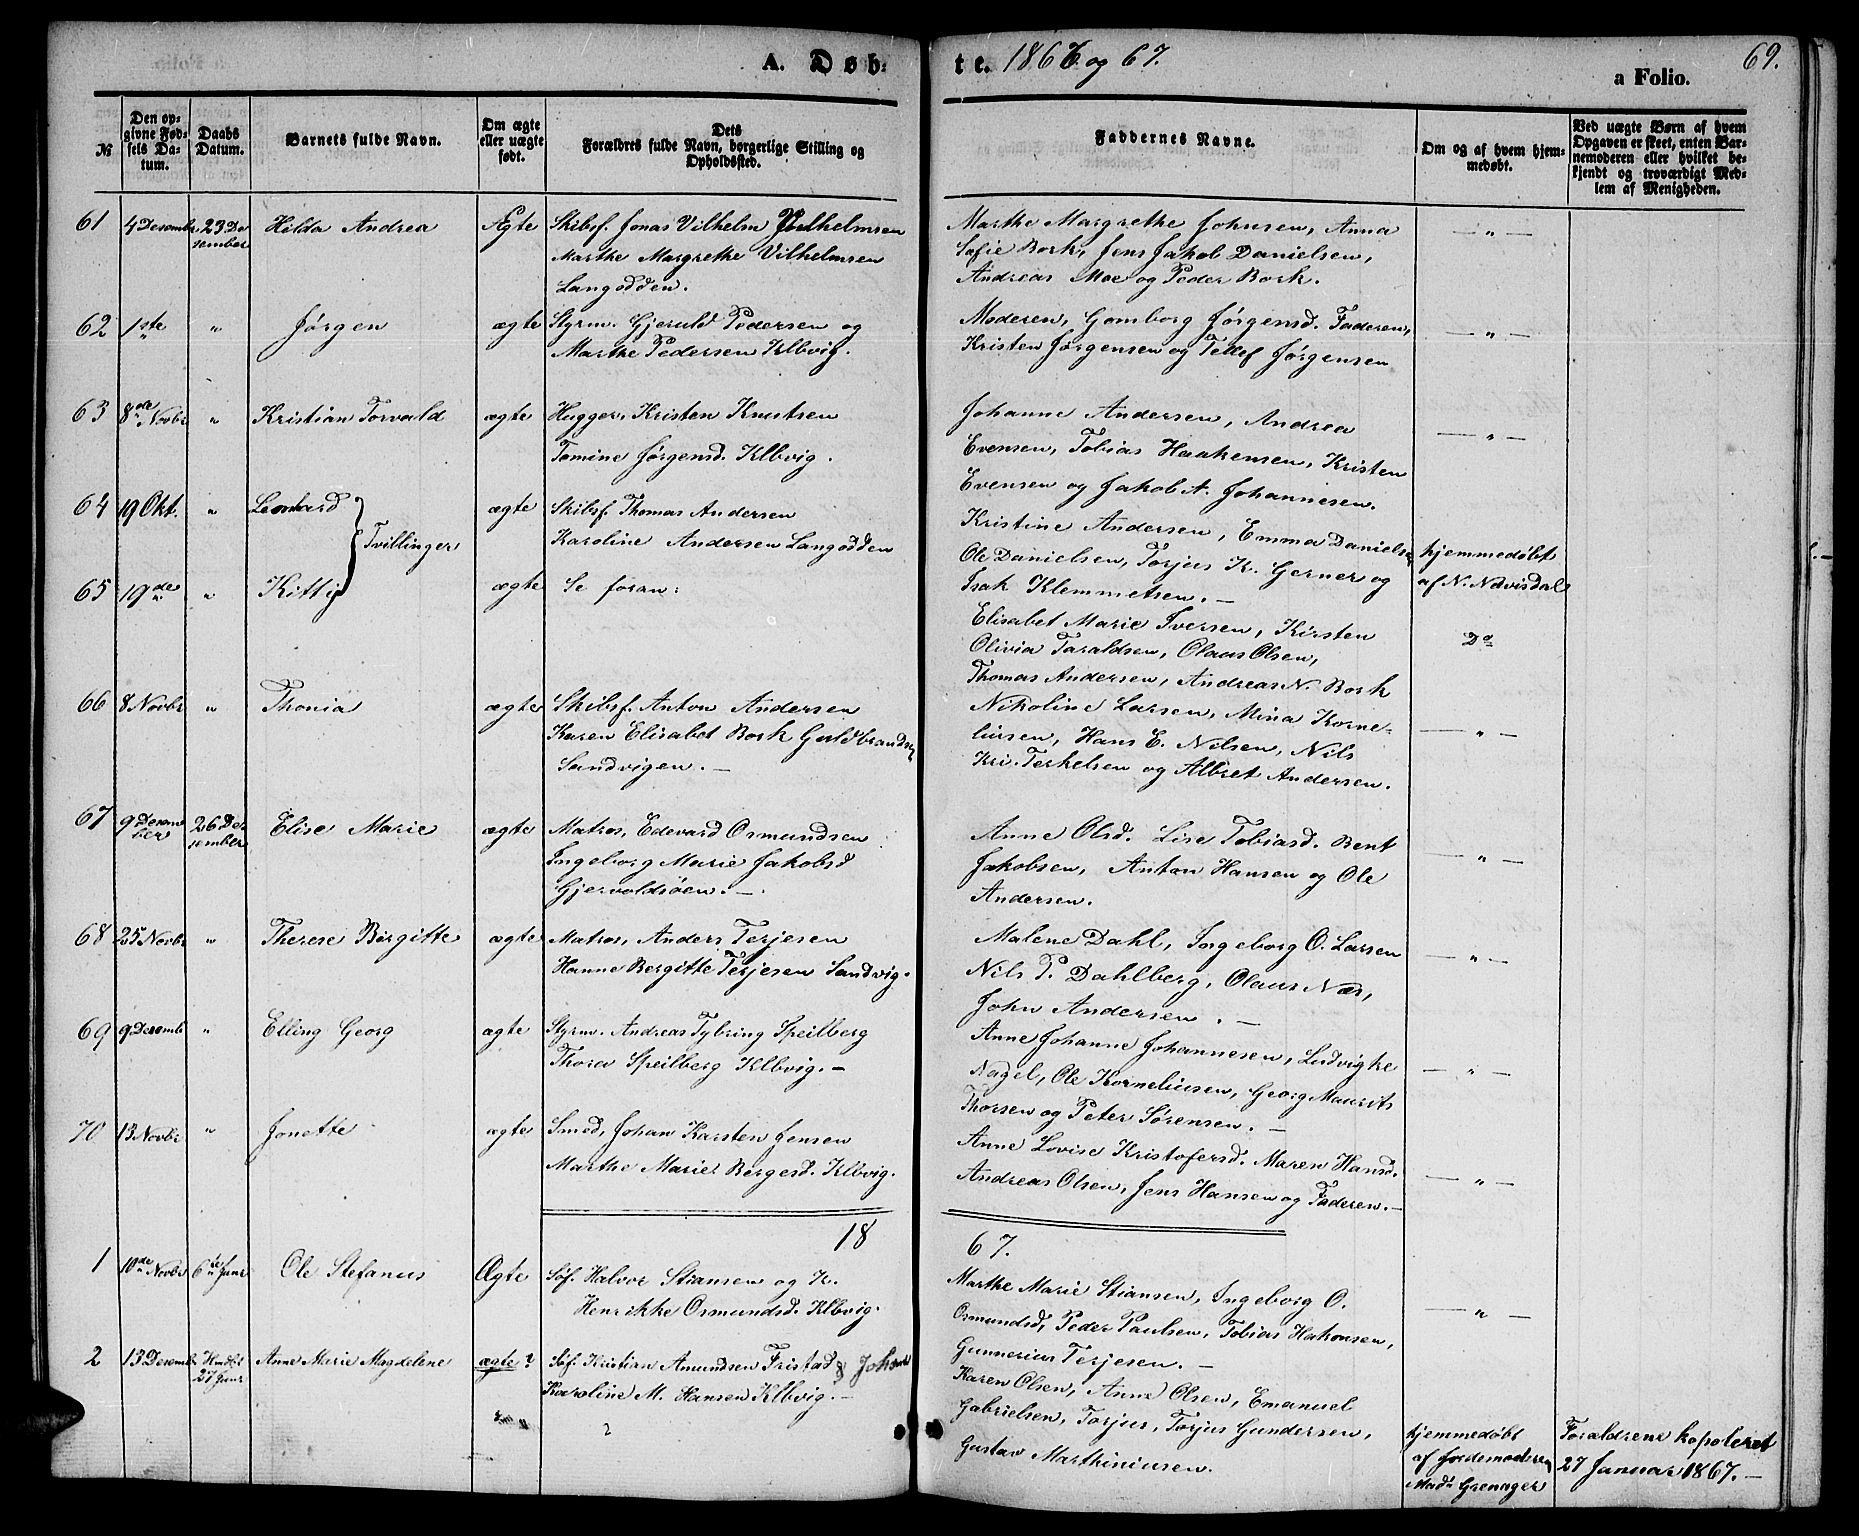 A. Døb-
te. 1866 og 67.
a Folio.
69.
№
Den op-
givne Fød-
sels Da-
tum.
Daabs
Datum.
Barnets fulde Navn.
Om ægte
eller uægte
født.
Dets
Forældres fulde Navn, borgerlige Stilling og
Opholdssted.
Faddernes Navne.
Om og af hvem hjem-
medøbt.
Ved uægte Børn af hvem
Opgaven er skeet, enten Bar-
nemoderen eller hvilket be-
kjendt og troværdigt Med-
lem af Menigheden.
61 4 Desembr 23 De
sember Hilda Andrea Ægte Skibsf. Jonas Vilhelm Vilhelmsen
Marthe Margrethe Vilhelmsen
Langodden.
Marthe Margrethe Johnsen, Anna
Sofie Bork, Jens Jakob Danielsen,
Andreas Moe og Peder Bork.
— " —
62 1ste " Jørgen ægte Styrm. Gjeruld Pedersen og
Marthe Pedersen Klbvig.
Moderen, Gomborg Jørgensd. Faderen,
Kristen Jørgensen og Tellef Jørgensen
— " —
63 8de Novbr " Kristian Torvald ægte Hugger. Kristen Knutsen
Tomine Jørgensd. Klbvig.
Johanne Andersen, Andrea
Evensen, Tobias Haakensen, Kristen
Evensen og Jakob A. Johannesen.
— " —
64 19 Okt. " Leonhard ægte Skibsf. Thomas Andersen
Tvillinger
Karoline Andersen Langodden
Kristine Andersen, Emma Danielsen
Ole Danielsen, Torjus K. Gerner og
Isak Klemmetsen. —
hjemmedøbt
af N. Nævisdal
65 19de " Kitty ægte Se foran:
Elisabet Marie Iversen, Kirsten
Olivia Taraldsen, Olaus Olsen,
Thomas Andersen, Andreas N. Bork
Do
66 8 Novbr " Thonia ægte Skibsf. Anton Andersen
Karen Elisabet Bork Guldbrandsen
Sandvigen. —
Nikoline Larsen, Mina Korne-
liusen, Hans E. Nilsen, Nils
Kri. Terkelsen og Albret Andersen.
— " —
67 9 Desem
ber 26 De
sember Elise Marie ægte Matros, Edevard Osmundsen
Ingeborg Marie Jakobsd
Gjervoldsøen. —
Anne Olsd. Lise Tobiasd. Bent
Jakobsen, Anton Hansen og Ole
Andersen.
— " —
68 25 Novbr " Therese Birgitte ægte Matros, Anders Terjesen
Hanne Bergitte Terjesen Sandvig.
Malene Dahl, Ingeborg O. Larsen
Nils P. Dahlberg, Olaus Næs,
John Andersen. —
— " —
69 9 Desembr " Elling Georg ægte Styrm. Andreas Tybring Speilberg
Thora Speilberg Klbvig. —
Anne Johanne Johannesen, Ludvigke
Nagel, Ole Korneliusen, Georg Maurits
Thorsen og Peter Sørensen. —
— " —
70 13 Novbr " Jonette ægte Smed, Johan Karsten Jensen
Marthe Marie Bergesd. Klbvig.
Anne Lovise Kristofersd. Maren Hansd.
Andreas Olsen, Jens Hansen og Faderen. —
— " —
18
67.
1 10de Novbr 6te Janr Ole Stefanus Ægte Søf. Halvor Stiansen og K.
Henrikke Osmundsd. Klbvig.
Marthe Marie Stiansen, Ingeborg O.
Osmundsd, Peder Paulsen, Tobias Hakonsen,
Gunnerius Terjesen. —
— " —
2 13 Desembr
27 Janr Anne Marie Magdelene ægte ? Søf. Kristian Amundsen Fristad
Karoline M. Hansen Klbvig. —
Karen Olsen, Anne Olsen, Emanuel
Gabrielsen, Torjus, Torjus Gundersen,
Gustav Marthiniusen.
hjemmedøbt
af Jordemoderen
Mad. Grenager
Forældrene kopoleret
27 Januar 1867. —